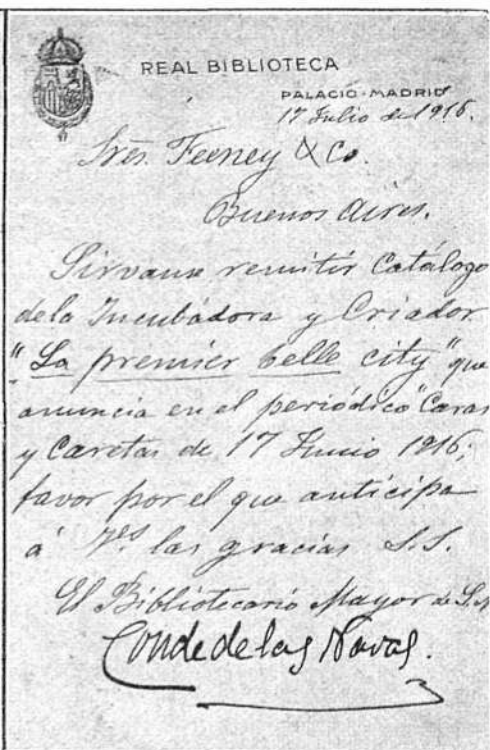 REAL BIBLIOTECA
PALACIO-MADRID
17 Julio del 1916.
Sres. Feeney & Co.
Buenos Aires.
Sirvanse remitir Catálogo
de la Incubadora y Criador
"La premier belle city" que
anuncia en el periódico "Caras
y Caretas de 17 Junio 1916;
favor por el que anticipa
á Vds las gracias S.S.
El Bibliotecario Mayor de S.M
Conde de las Navas.